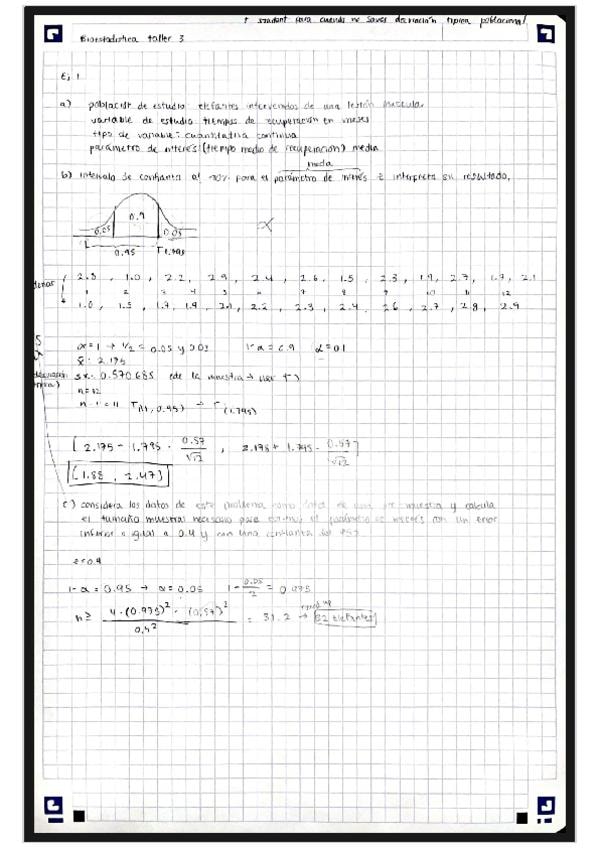 t student para cuando no sabes desviación típica poblacional
Bioestadística taller 3
Ej 1
a) población de estudio elefantes intervenidos de una lesión muscular
variable de estudio tiempos de recuperación en meses
tipo de variable: cuantitativa continua
parámetro de interés: (tiempo medio de recuperación) media
media
b) intervalo de confianza al 90% para el parámetro de interés e interpreta su resultado.
0.05 0.9 0.05
0.95 T 1.795
2.3, 1.0, 2.2, 2.9, 2.4, 2.6, 1.5, 2.3, 1.9, 2.7, 1.7, 2.1
1 2 3 4 5 6 7 8 9 10 11 12
1.0, 1.5, 1.7, 1.9, 2.1, 2.2, 2.3, 2.4, 2.6, 2.7, 2.8, 2.9
1-α = 0.9 α = 0.1
x̄ = 2.175
sx = 0.570685 (de la muestra → usar t)
n = 12
n-1 = 11 T(11, 0.95) → T(1.795)
[2.175 - 1.795 · 0.57/√12, 2.175 + 1.795 · 0.57/√12]
[(1.88, 2.47)]
c) considera los datos de este problema como datos de una premuestra y calcula
el tamaño muestral necesario para estimar el parámetro de interés con un error
inferior o igual a 0.4 y con una confianza del 95%
ε = 0.4
1-α = 0.95 → α = 0.05 1 - 0.05/2 = 0.975
n ≥ 4 · (0.975)² · (0.57)² / 0.4² = 31.2 → 32 elefantes
round up